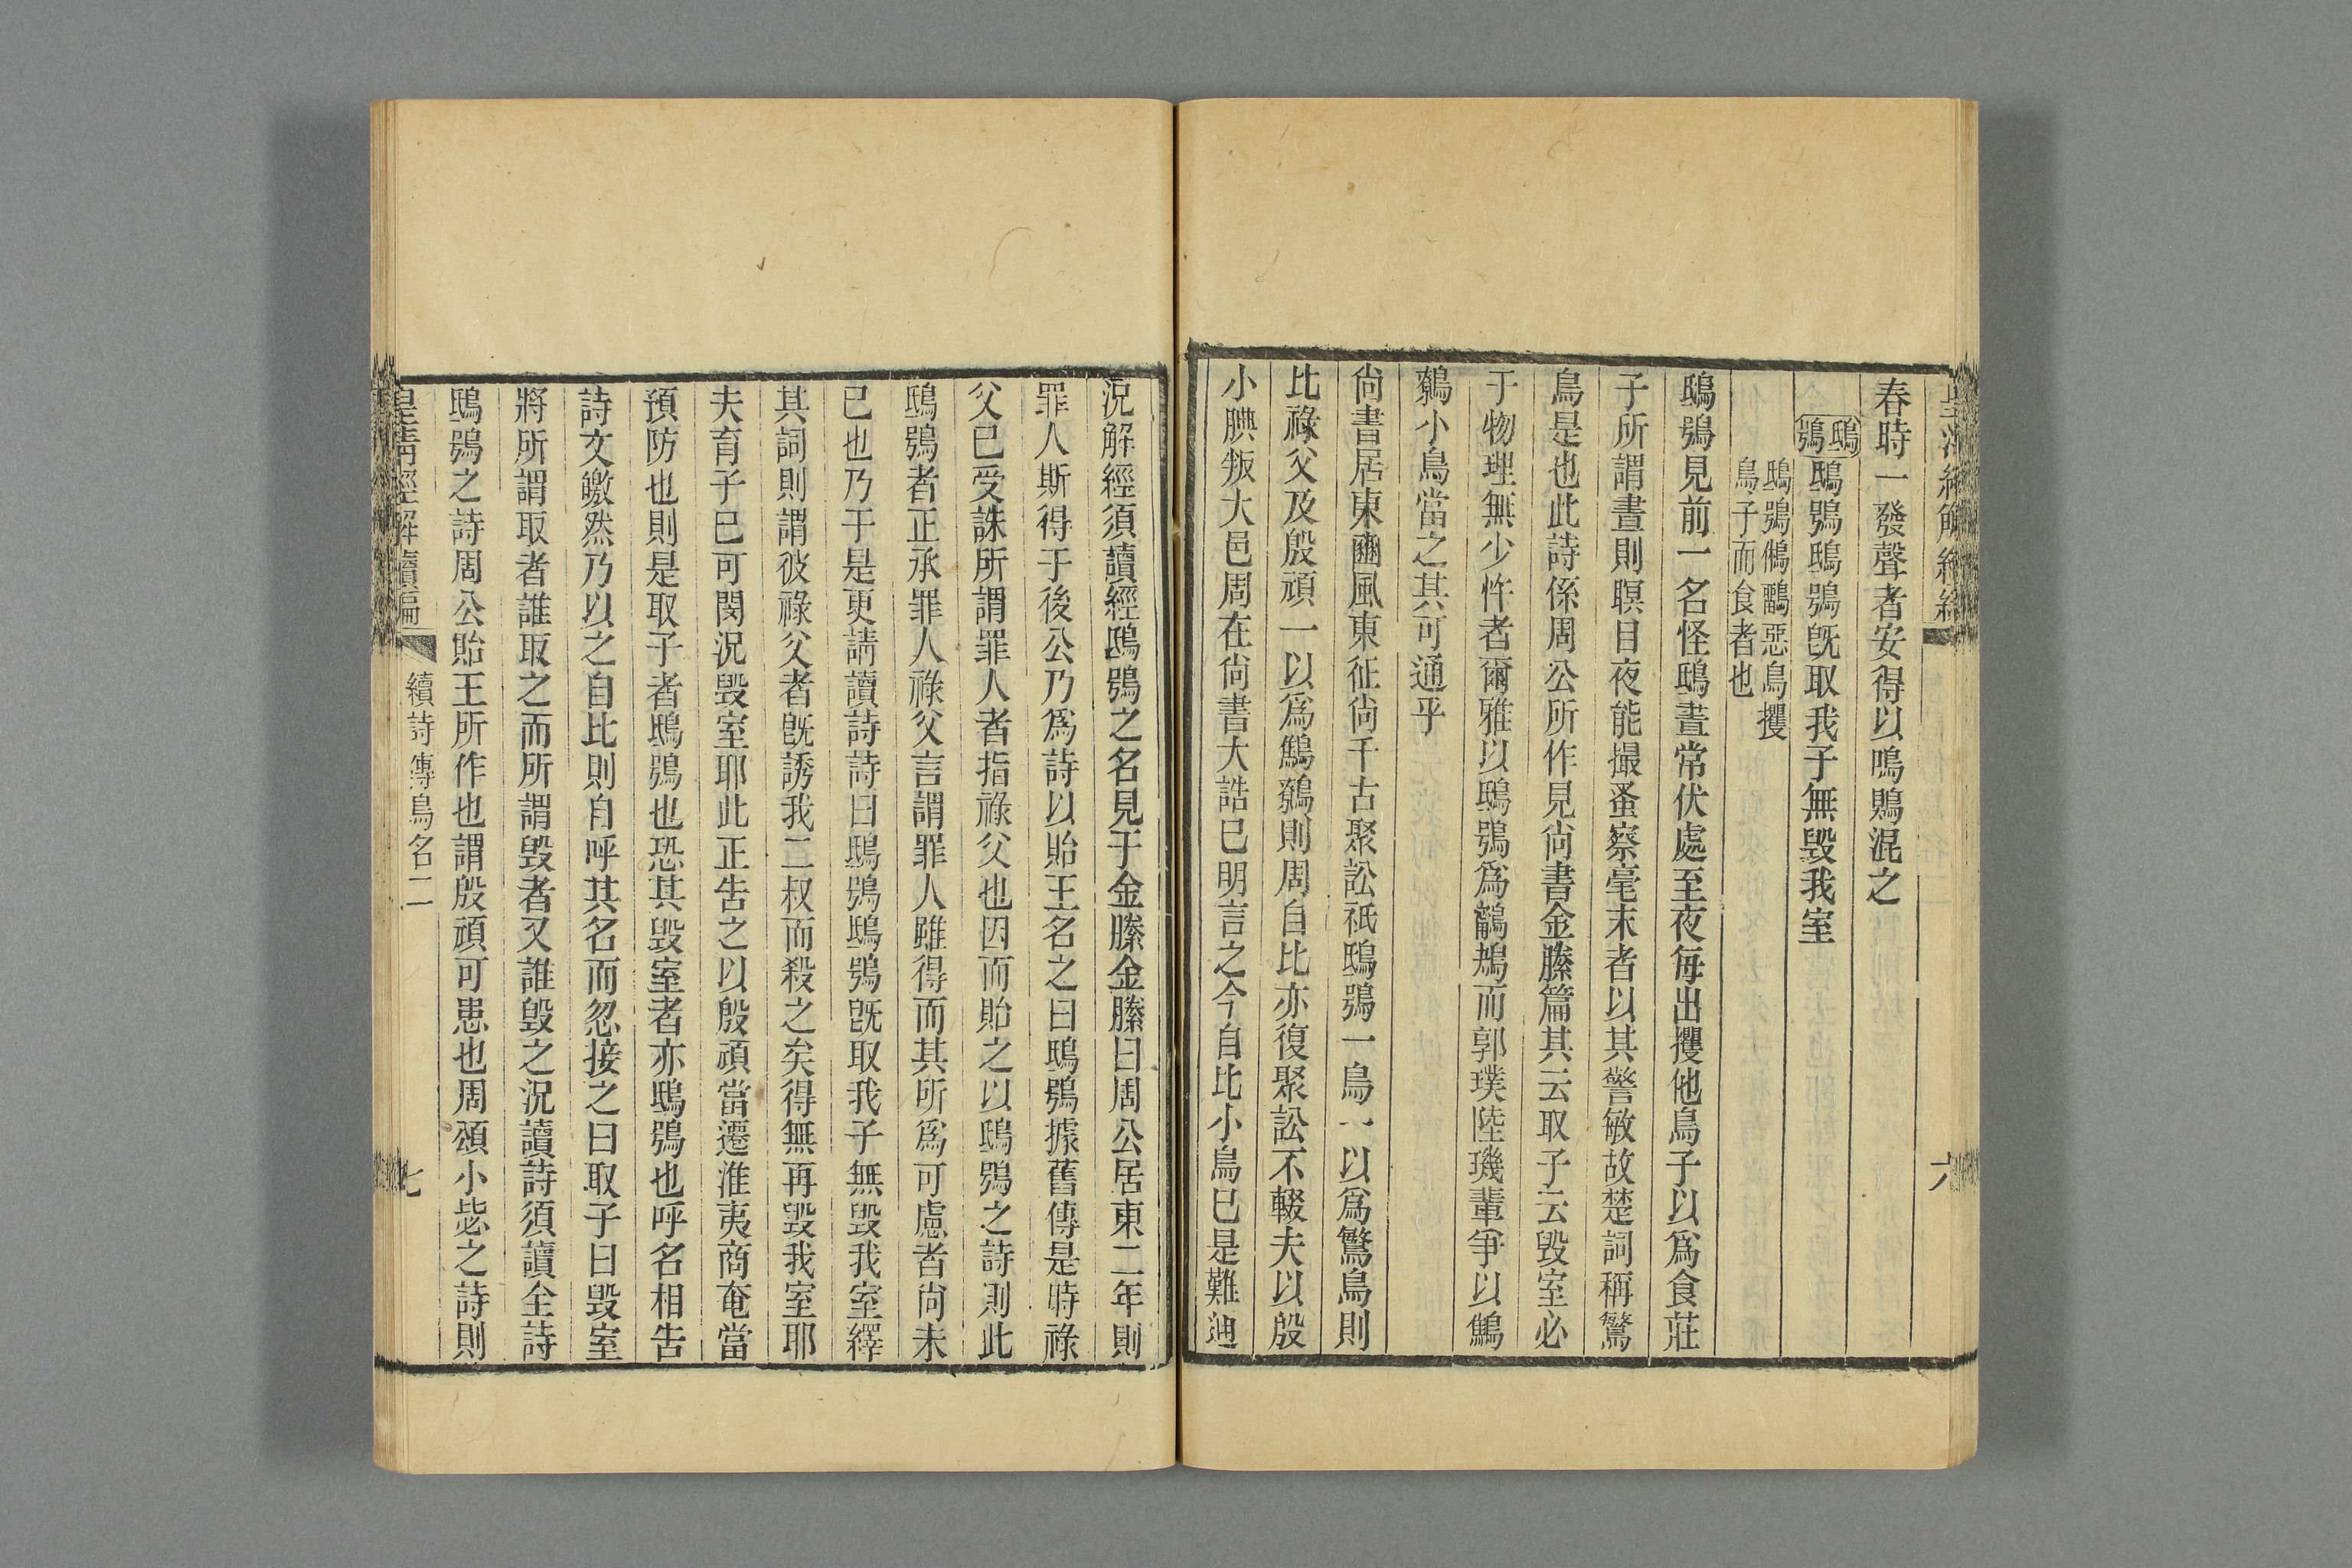 春時一發聲者安得以鳴鴂混之
鴟鴞鴟鴞鴟鴞旣取我子無毁我室
鴟鴞鵂鶹惡鳥攫
鳥子而食者也
鴟鴞見前一名怪鴟晝常伏處至夜每出攫他鳥子以爲食莊
子所謂晝則瞑目夜能撮蚤察毫末者以其警敏故楚詞稱鷙
鳥是也此詩係周公所作見尚書金縢篇其云取子云毁室必
于物理無少忤者爾雅以鴟鴞爲鸋鴂而郭璞陸璣輩爭以鷦
鷯小鳥當之其可通乎
尚書居東豳風東征尚千古聚訟祇鴟鴞一鳥一以爲鷙鳥則
比祿父及殷頑一以爲鷦鷯則周自比亦復聚訟不輟夫以殷
小腆叛大邑周在尚書大誥已明言之今自比小鳥已是難通
況解經須讀經鴟鴞之名見于金縢金縢曰周公居東二年則
罪人斯得于後公乃爲詩以貽王名之曰鴟鴞據舊傳是時祿
父已受誅所謂罪人者指祿父也因而貽之以鴟鴞之詩則此
鴟鴞者正承罪人祿父言謂罪人雖得而其所爲可慮者尚未
已也乃于是更請讀詩詩曰鴟鴞鴟鴞旣取我子無毁我室繹
其詞則謂彼祿父者旣誘我二叔而殺之矣得無再毁我室耶
夫育子已可閔況毁室耶此正告之以殷頑當遷淮夷商奄當
預防也則是取子者鴟鴞也恐其毁室者亦鴟鴞也呼名相告
詩文皦然乃以之自比則自呼其名而忽接之曰取子曰毁室
將所謂取者誰取之而所謂毁者又誰毁之況讀詩須讀全詩
鴟鴞之詩周公貽王所作也謂殷頑可患也周頌小毖之詩則
皇淸經解續編 續詩傳鳥名二 七